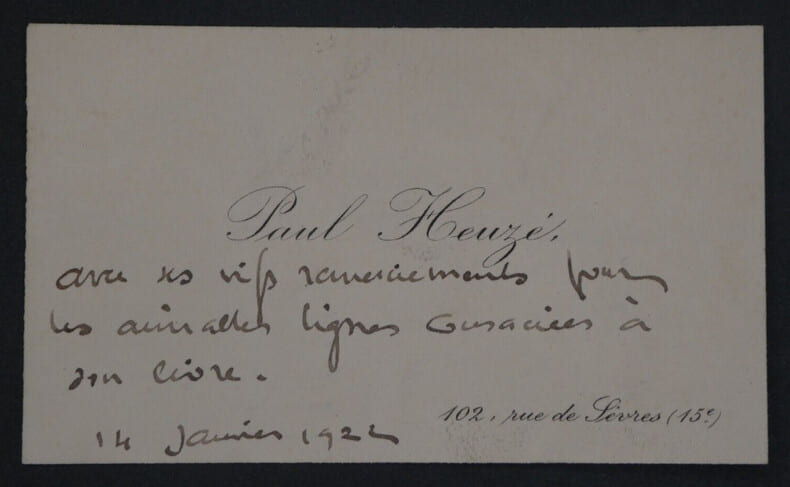 Paul Heuzé,
avec ses vifs remerciements pour
les aimables lignes consacrées à
son livre.
14 Janvier 1922
102, rue de Sèvres (15e)